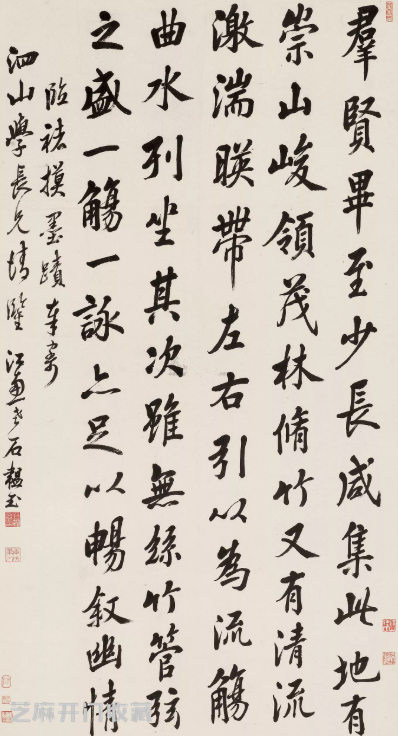 羣賢畢至少長咸集此地有
崇山峻領茂林脩竹又有清流
激湍暎帶左右引以為流觴
曲水列坐其次雖無絲竹管弦
之盛一觴一詠亦足以暢叙幽情
臨褚摸墨蹟奉寄
泗山學長兄清鑒
芝麻开门收藏